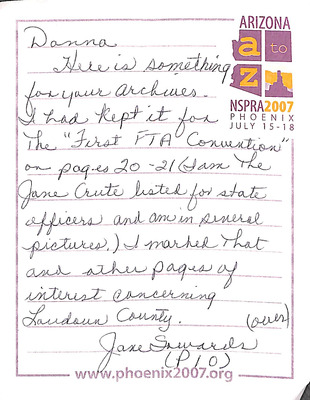 ARIZONA
a to z
NSPRA2007
PHOENIX
JULY 15-18
Donna
Here is something
for your archives.
I had kept it for
The "First FTA Convention"
on pages 20-21 (I am The
Jane Crute listed for state
officers and am in several
pictures.) I marked That
and other pages of
interest concerning
Loudoun County. (over)
Jane Sowards
(P10)
www.phoenix2007.org